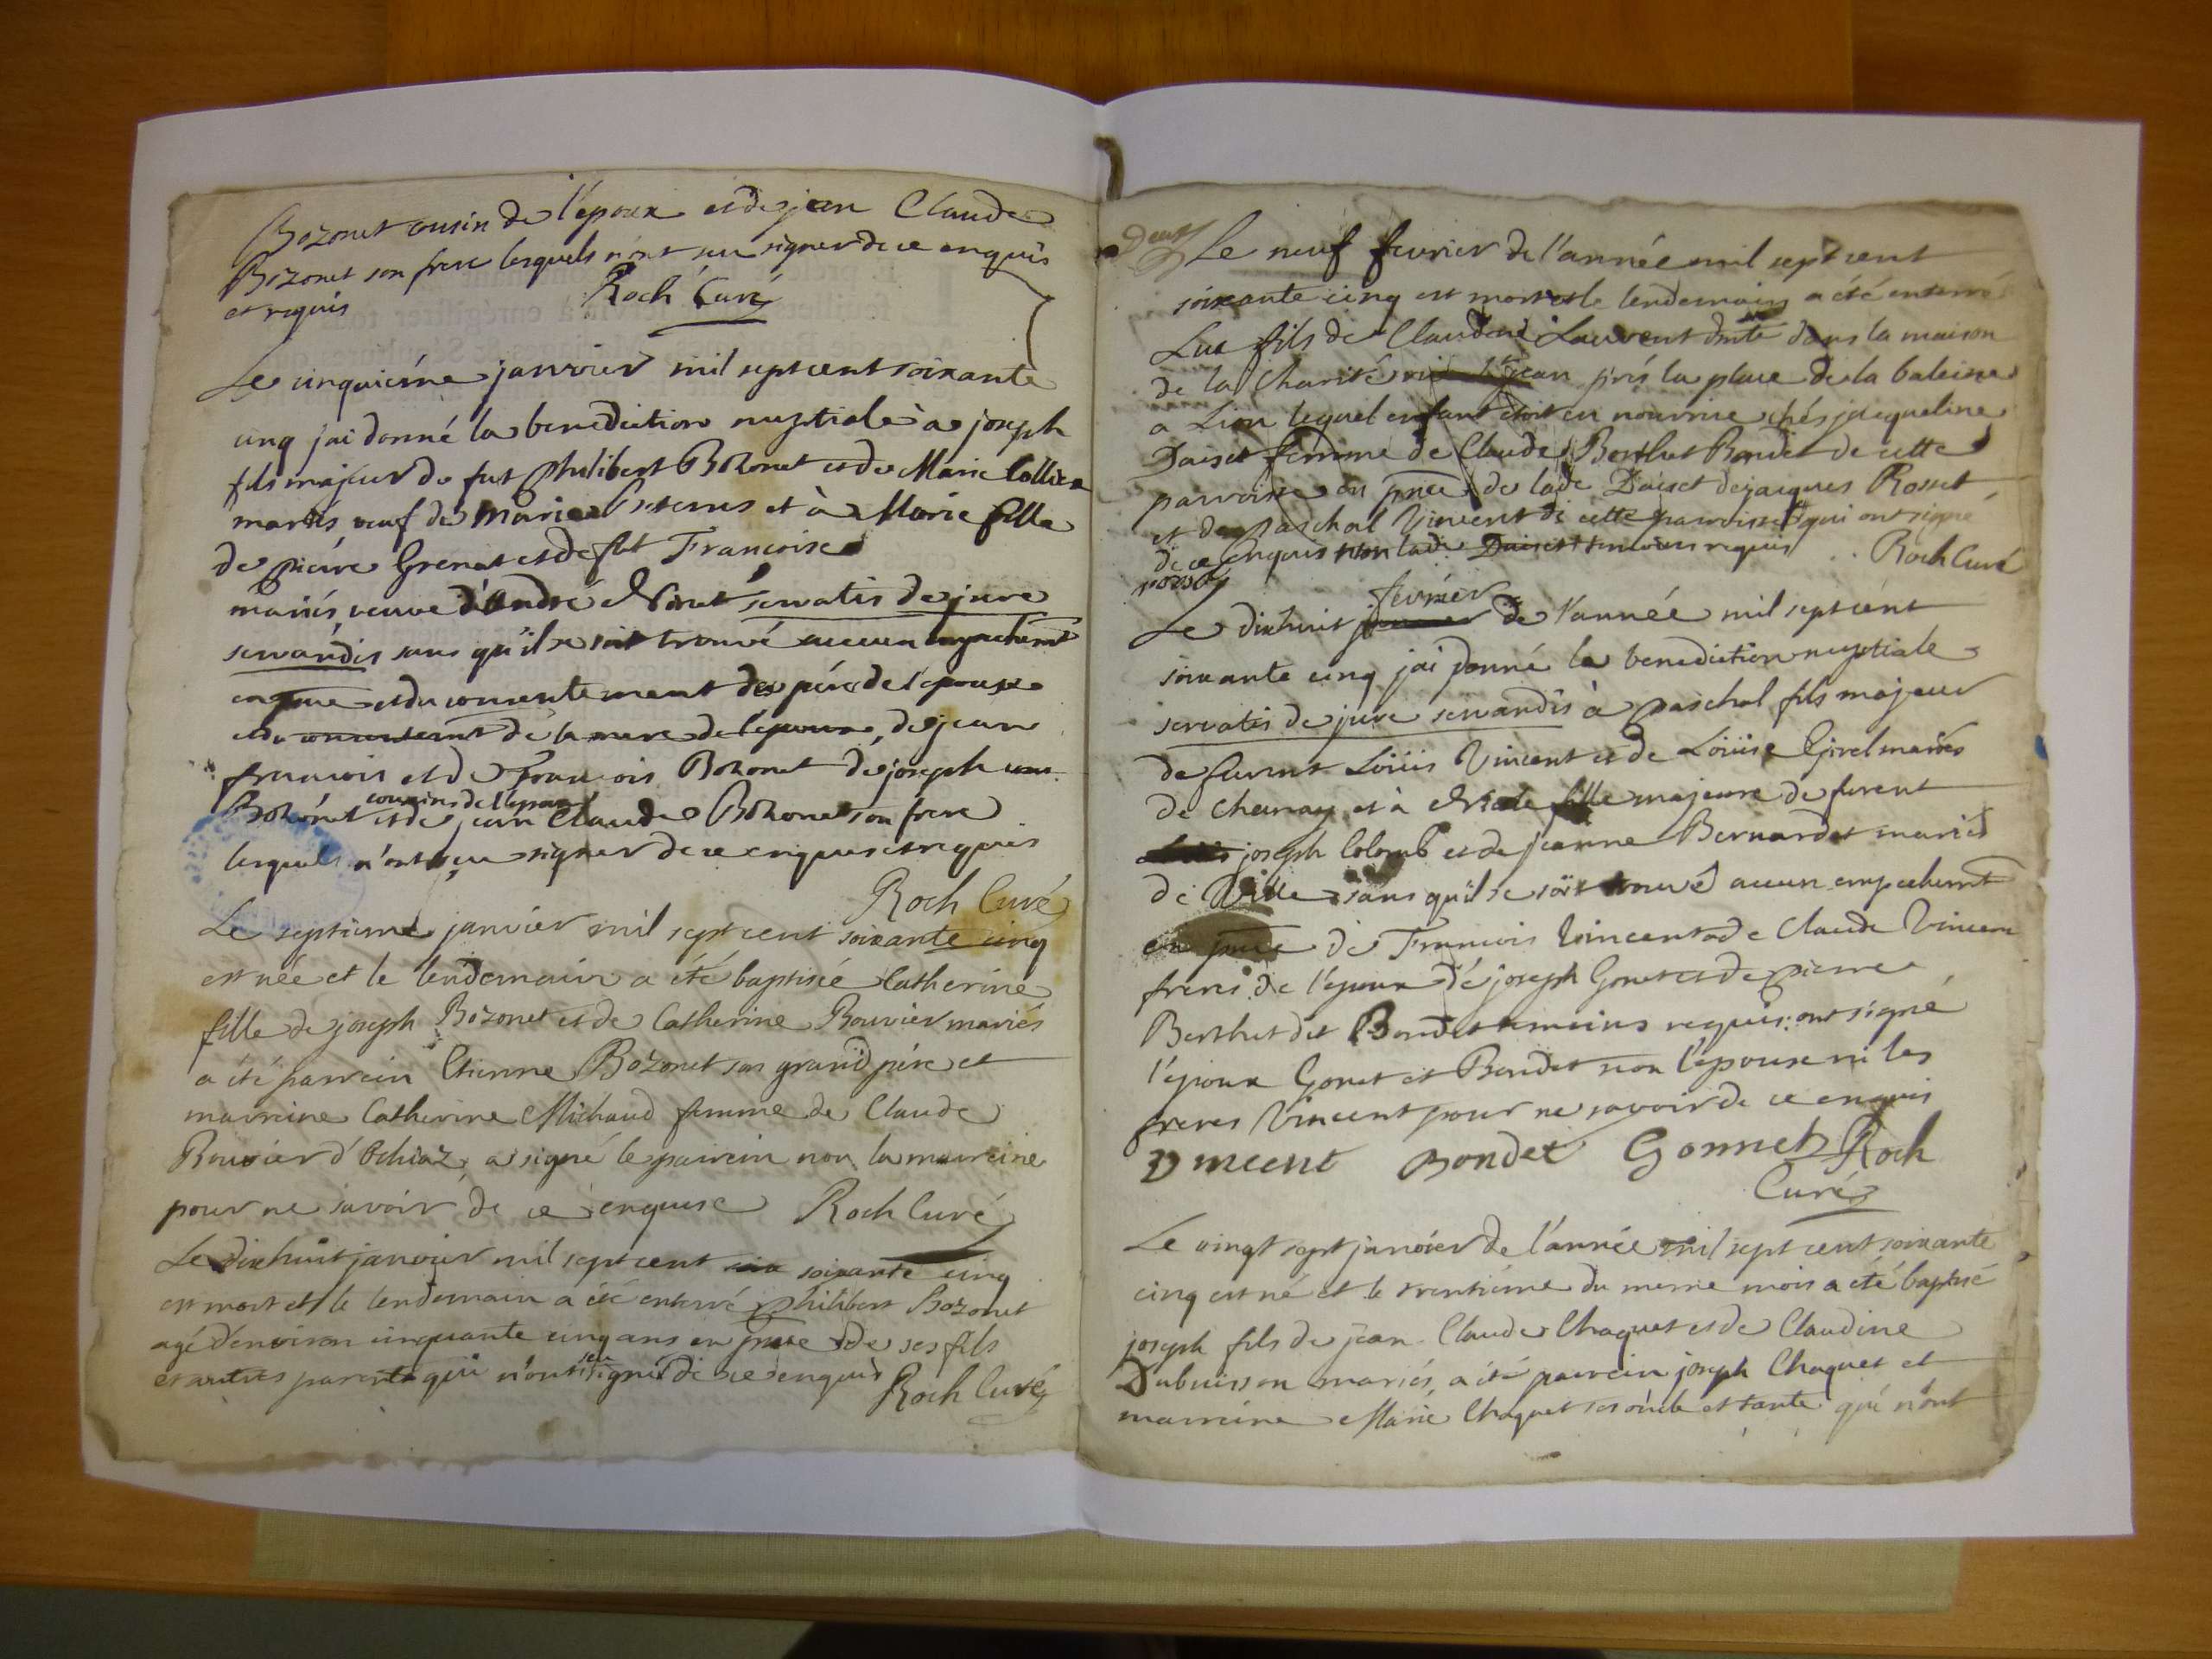 Bozonet cousin de l'epoux et de jean Claude
Bozonet son frere lesquels n'ont seu signer de ce enquis
et requis Roch Curé
Le cinquiéme janvier mil sept cent soixante
cinq jai donné la benediction nuptiale à joseph
fils majeur de fut Philibert Bozonet et de Marie Colliex
mariés veuf de Marie et à Marie fille
de pierre Grenat et de fut Francoise
mariés, veuve d'André servatis de jure
servandis sans qu'il se soit trouvé aucun empechemt
en pnce et du consentement du pére de l'epouse
et du consentemt de la mere de l'epoux, de jean
francois et de Francois Bozonet de joseph
Bozonet cousins de l'epoux et de jean Claude Bozonet son frere
lesquels n'ont sçu signer de ce enquis et requis
Roch Curé
Le septieme janvier mil sept cent soixante cinq
est née et le lendemain a été baptisée Catherine
fille de joseph Bozonet et de Catherine Bouvier mariés
a été parrein Etienne Bozonet son grand pére et
marreine Catherine Michaud femme de Claude
Bouvier d'Ochiaz, a signé le parrein non la marreine
pour ne savoir de ce enquise Roch Curé
Le dixhuit janvier mil sept cent soixante cinq
est mort et le lendemain a été enterré Philibert Bozonet
agé d'environ cinquante cinq ans en pnce de ses fils
et autres parents qui n'ont seu signé de ce enquis
Roch Curé
Le neuf fevrier de l'année mil sept cent
soixante cinq est mort et le lendemain a été enterré
Luc fils de Claudine Laurent dans la maison
de la Charité jean prés la place de la baleine
a Lion lequel enfant etoit en nourrice chés jacqueline
Daiset femme de Claude Berthet Bondet de cette
parroisse en pnce de lade Daiset de jacques Rosset
et de paschal Vincent de cette parroisse qui ont signé
de ce enquis non lade Daiset temoins requis Roch Curé
rosset
Le dixhuit février de l'année mil sept cent
soixante cinq jai donné la benediction nuptiale
servatis de jure servandis à paschal fils majeur
de furent Loüis Vincent et de Loüise Girel mariés
de Chanay et à fille majeure de furent
joseph Colomb et de jeanne Bernardet mariés
de Ville sans qu'il se soit trouvé aucun empechemt
en pnce de Francois Vincent de Claude Vincent
fréres de l'epoux de joseph Gonet et de pierre
Berthet dit Bondet temoins requis, ont signé
l'epoux Gonet et Bondet non l'epouse ni les
freres Vincent pour ne savoir de ce enquis
Vincent Bondet Gonnet Roch
Curé
Le vingt sept janvier de l'année mil sept cent soixante
cinq est né et le trentiéme du meme mois a été baptisé
joseph fils de jean Claude Chaquet et de Claudine
Dubuisson mariés, a été parrein joseph Chaquet et
marreine Marie Chaquet ses oncle et tante qui n'ont